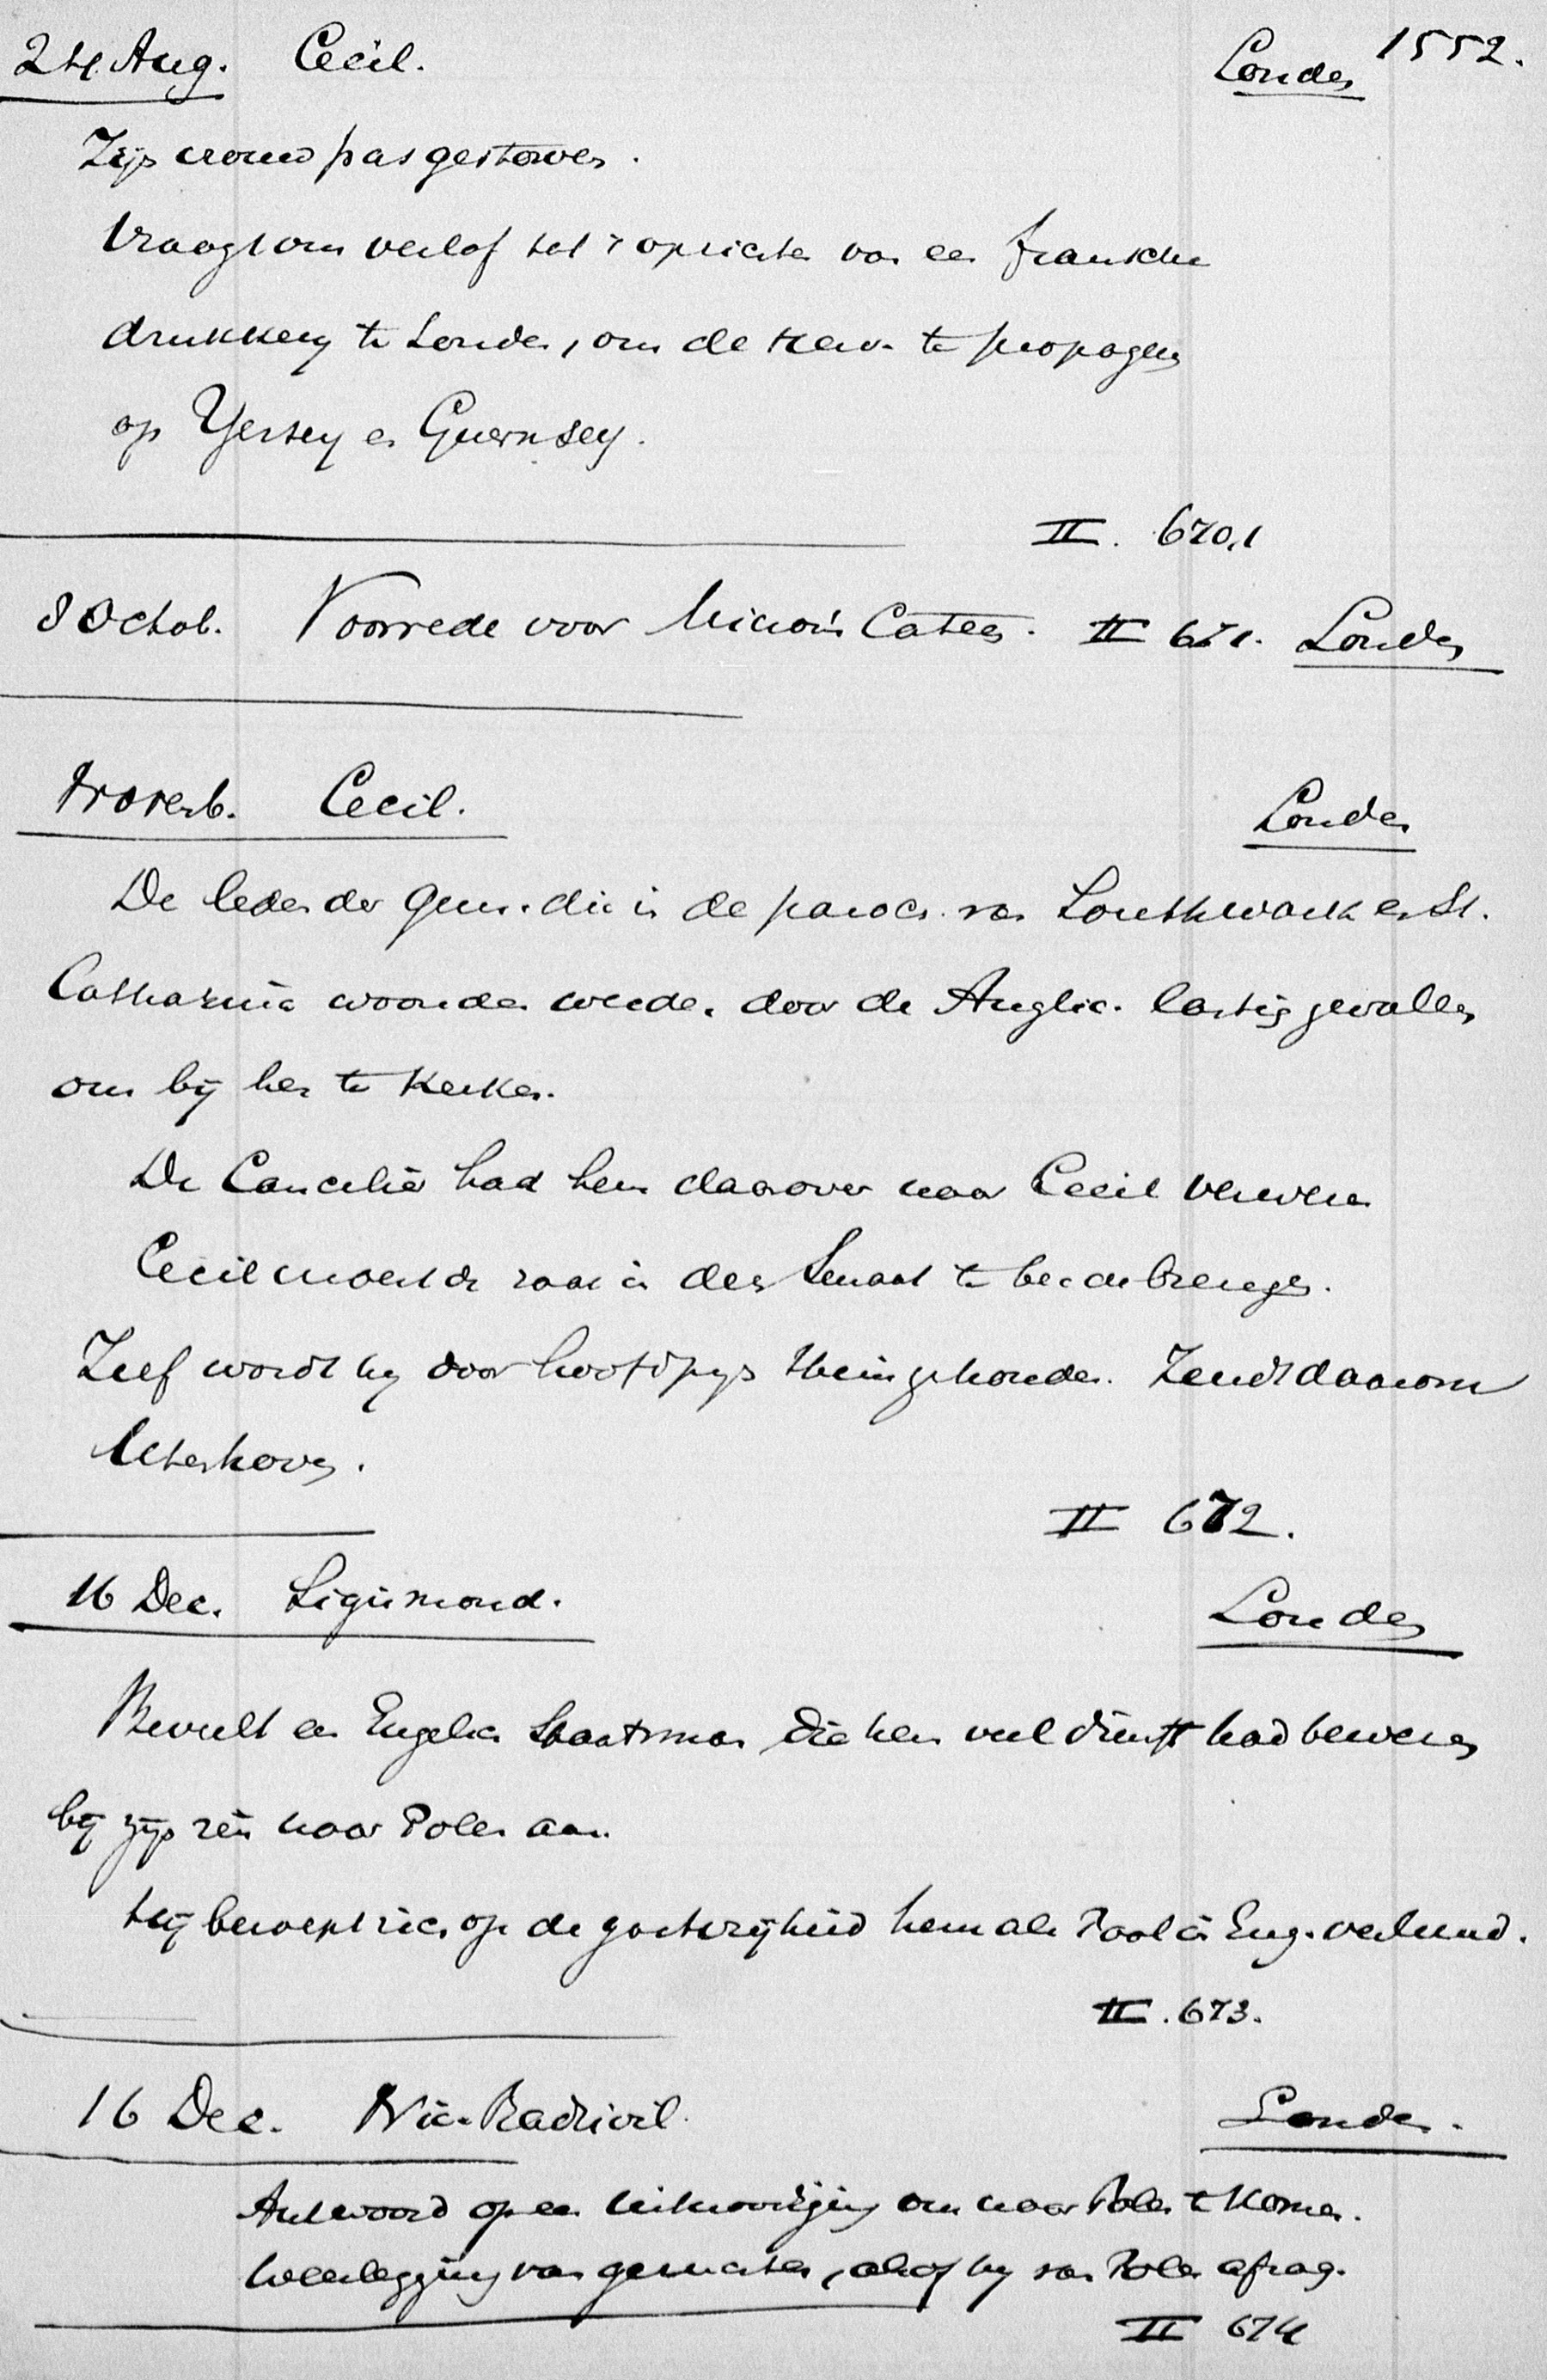 24 Aug. Cecil. Londen 1552.
Zijn vrouw pas gestorven.
Vraagt om verlof tot 't oprichten van een fransche
drukkerij te Londen, om de te propageren
op Yersey en Guernsey.
II. 670,1
8 Octob. Voorrede voor Micron's Catec. II 671. Londen
Novemb. Cecil. Londen
De leden der gem. die in de paroch. van Southwark en St.
Catharina woonden werden door de Anglic. lastig gevallen
om bij hen te kerken.
De Cancelier had hem daarover naar Cecil verwezen
Cecil moest de zaak in den Senaat te berde brengen.
Zelf wordt hij door hoofdpijn thuis gehouden. Zendt daarom
Utenhoven.
II 672.
16 Dec. Sigismond. Londen
Beveelt een Engelsch Staatsman die hem veel dienst had bewezen
bij zijn reis naar Polen aan.
Hij beroept zich op de gastvrijheid hem als Pool in Eng. verleend.
II. 673.
16 Dec. Nic. Radzivil. Londen.
Antwoord op een uitnoodiging om naar Polen te komen.
Weerlegging van geruchten, alsof hij van Polen afzag.
II 674